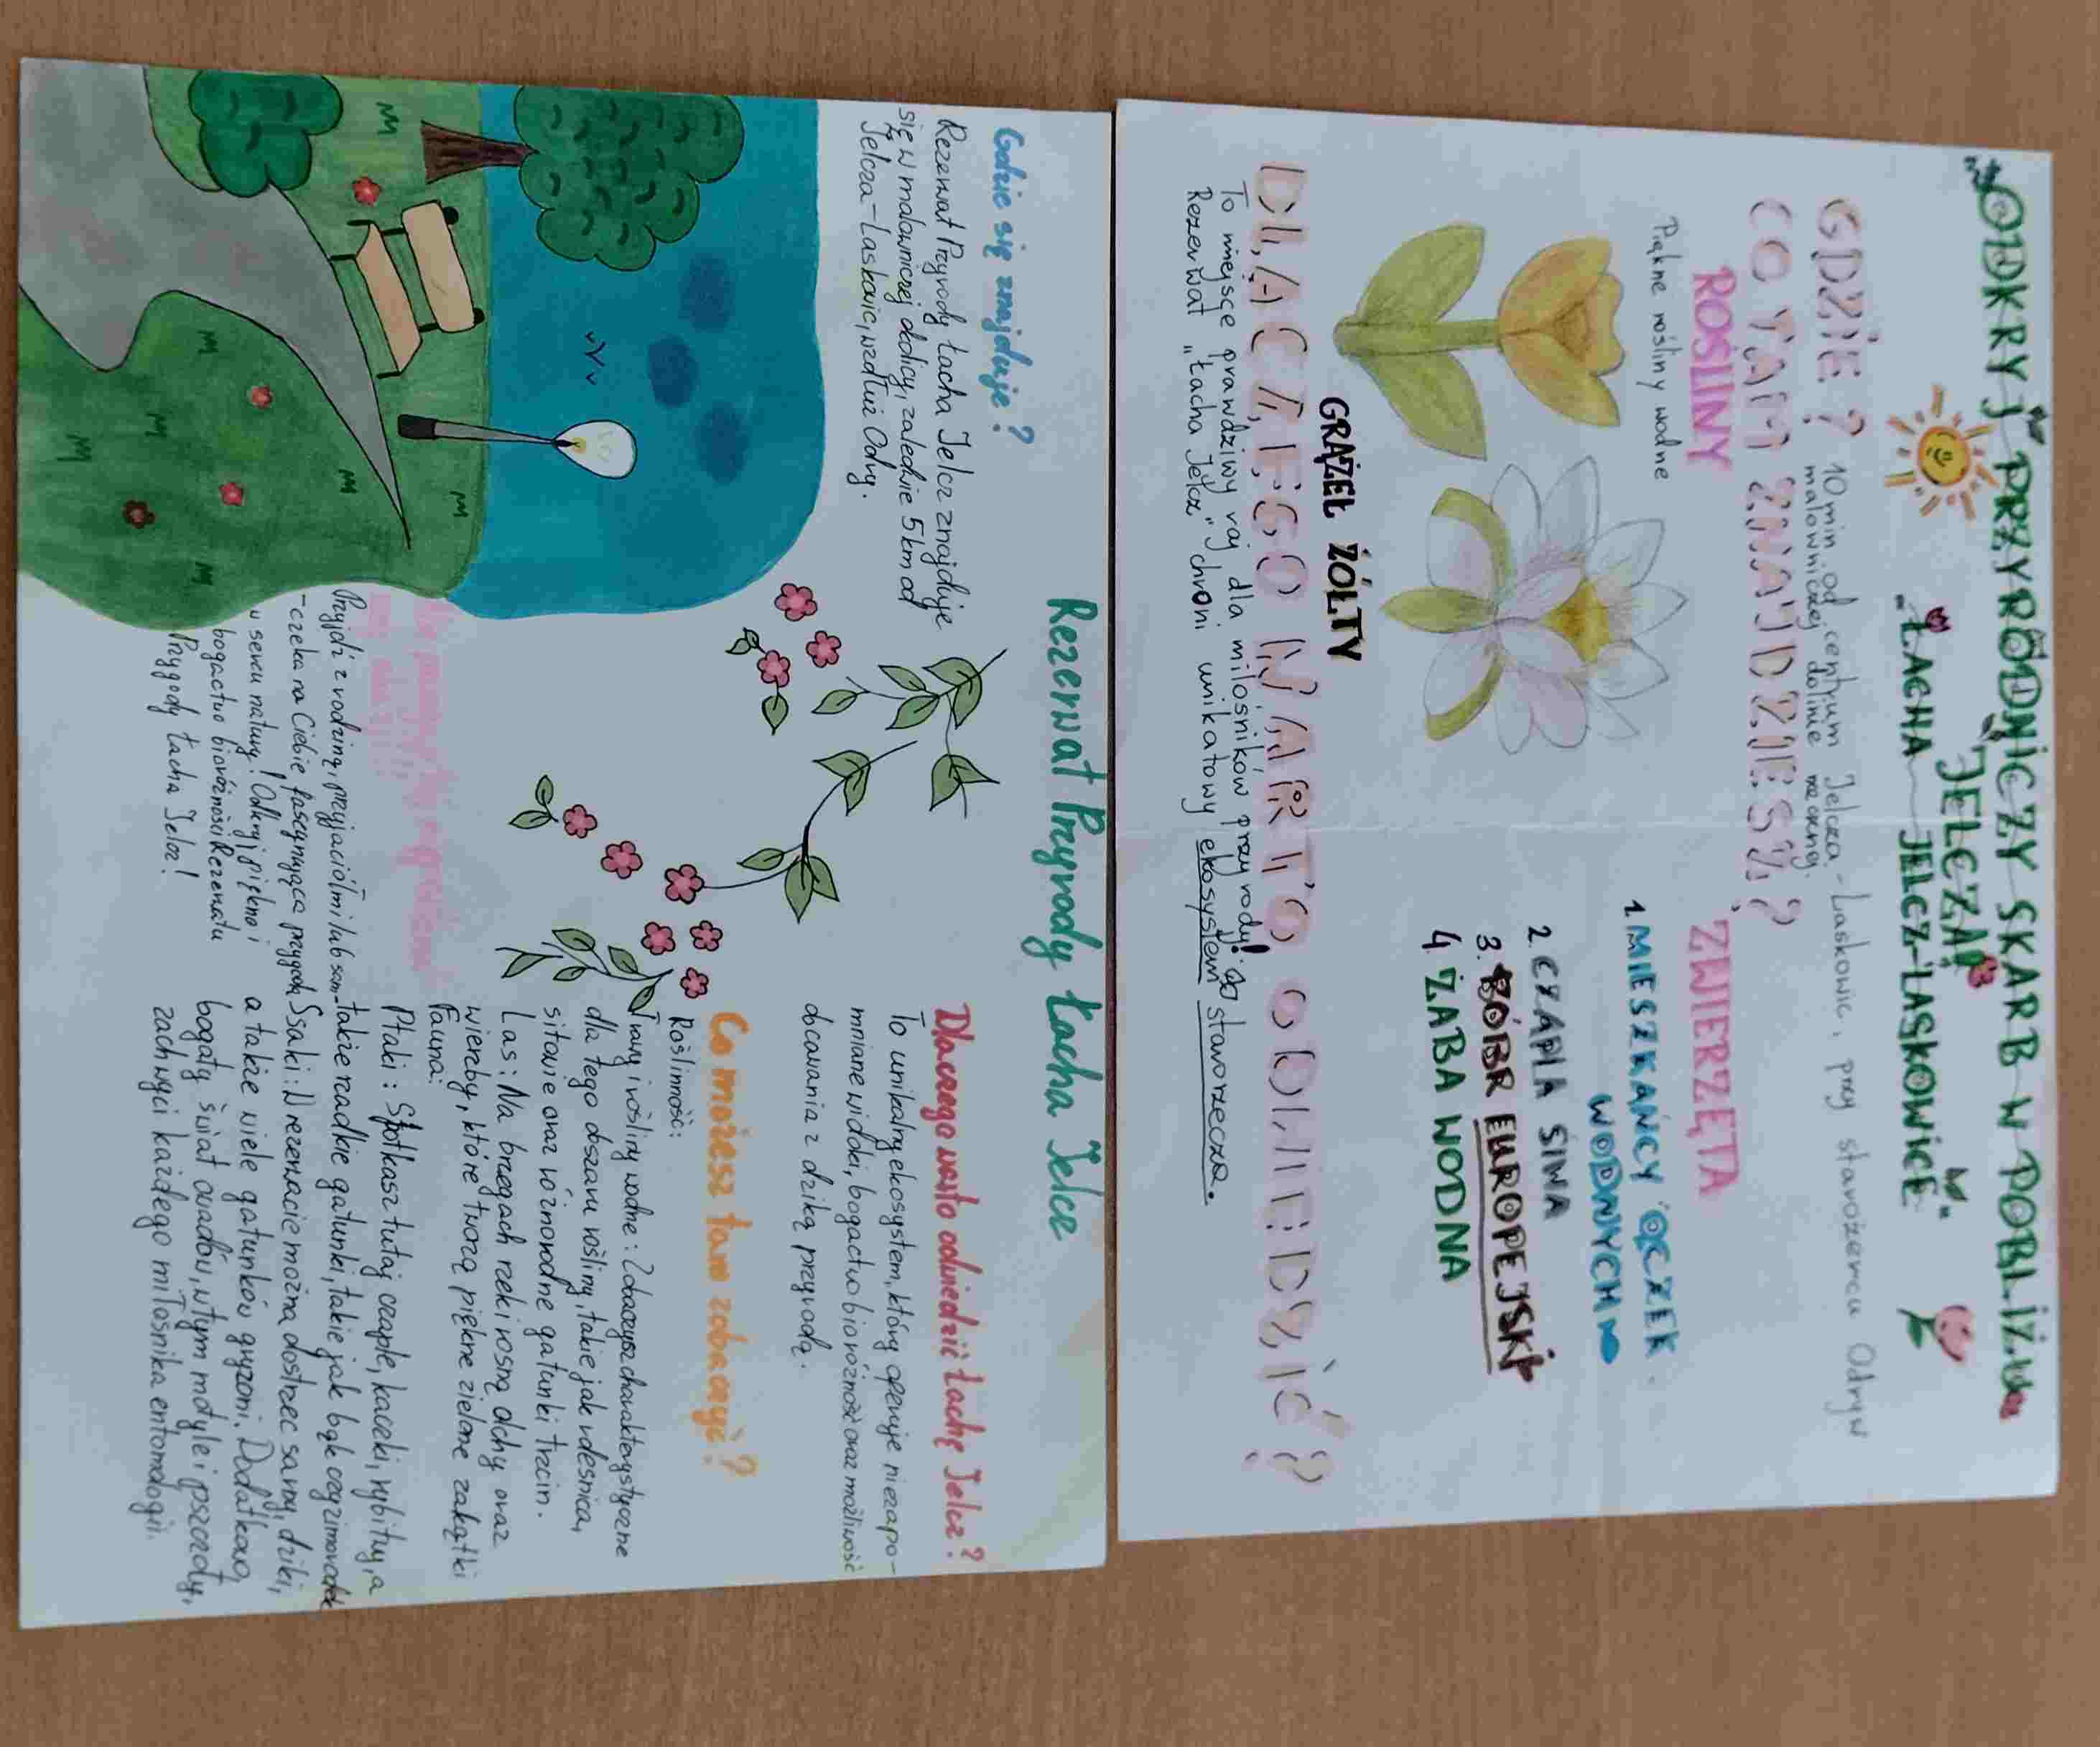 ODKRYJ PRZYRODNICZY SKARB W POBLIŻU
JELCZA
ŁACHA JELCZ-LASKOWICE
GDZIE? 10 min od centrum Jelcza-Laskowic, przy starorzeczu Odry w
malowniczej dolinie rzecznej.
CO TAM ZNAJDZIESZ?
ROŚLINY
Piękne rośliny wodne
GRĄŻEL ŻÓŁTY
ZWIERZĘTA
1. MIESZKAŃCY OCZEK
WODNYCH
2. CZAPLA SIWA
3. BÓBR EUROPEJSKI
4. ŻABA WODNA
DLACZEGO WARTO ODWIEDZIĆ?
To miejsce prawdziwy raj dla miłośników przyrody!
Rezerwat "Łacha Jelcz" chroni unikatowy ekosystem starorzecza.
Rezerwat Przyrody Łacha Jelcz
Gdzie się znajduje?
Rezerwat Przyrody Łacha Jelcz znajduje
się w malowniczej okolicy, zaledwie 5 km od
Jelcza-Laskowic, wzdłuż Odry.
Dlaczego warto odwiedzić Łachę Jelcz?
To unikalny ekosystem, który oferuje niezapo-
mniane widoki, bogactwo bioróżnorodność oraz możliwość
obcowania z dziką przyrodą.
Co możesz tam zobaczyć?
Roślinność:
Trawy i rośliny wodne: Zobaczysz charakterystyczne
dla tego obszaru rośliny, takie jak rdestnica,
sitowie oraz różnorodne gatunki trzcin.
Las: Na brzegach rzeki rosną olchy oraz
wierzby, które tworzą piękne zielone zakątki
Fauna:
Ptaki: Spotkasz tutaj czaple, kaczki, rybitwy, a
także rzadkie gatunki, takie jak bąk czy zimorodek
Ssaki: W rezerwacie można dostrzec sarny, dziki,
a także wiele gatunków gryzoni. Dodatkowo,
bogaty świat owadów, w tym motyle i pszczoły,
zachwyci każdego miłośnika entomologii.
Przyjdź z rodziną, przyjaciółmi lub sam
- czeka na Ciebie fascynująca przygoda
w sercu natury! Odkryj piękno i
bogactwo bioróżności Rezerwatu
Przyrody Łacha Jelcz!